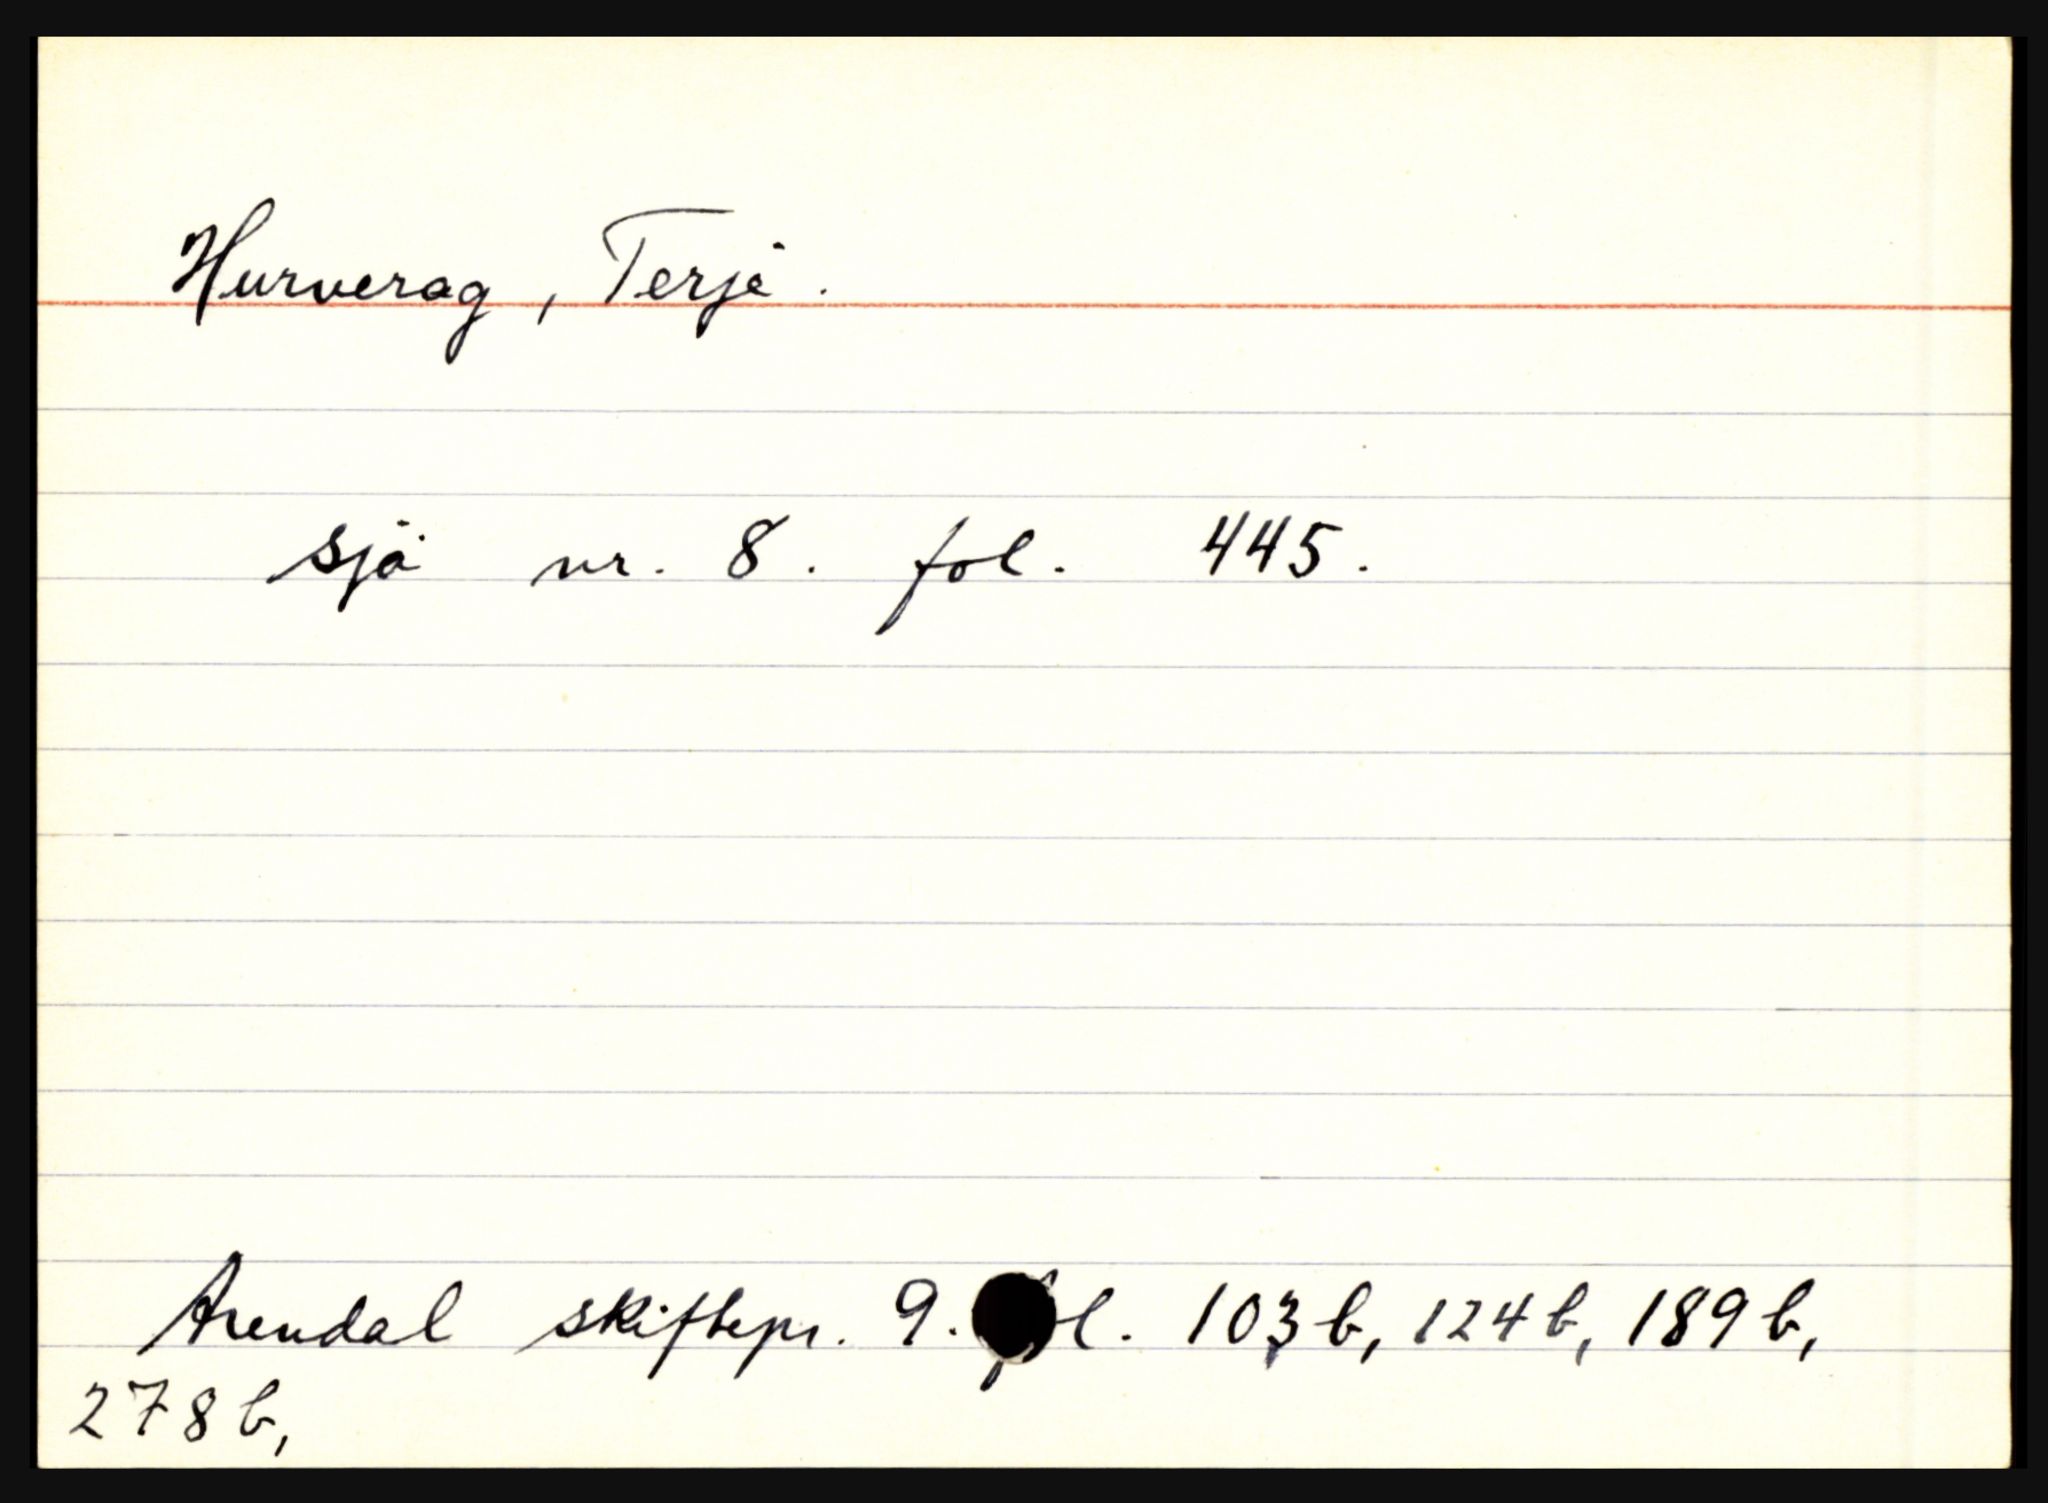 Hurverag, Terje.
sjö nr. 8. fol. 445.
Arendal skiftepr. 9. fol. 103b, 124b, 189b,
278b,